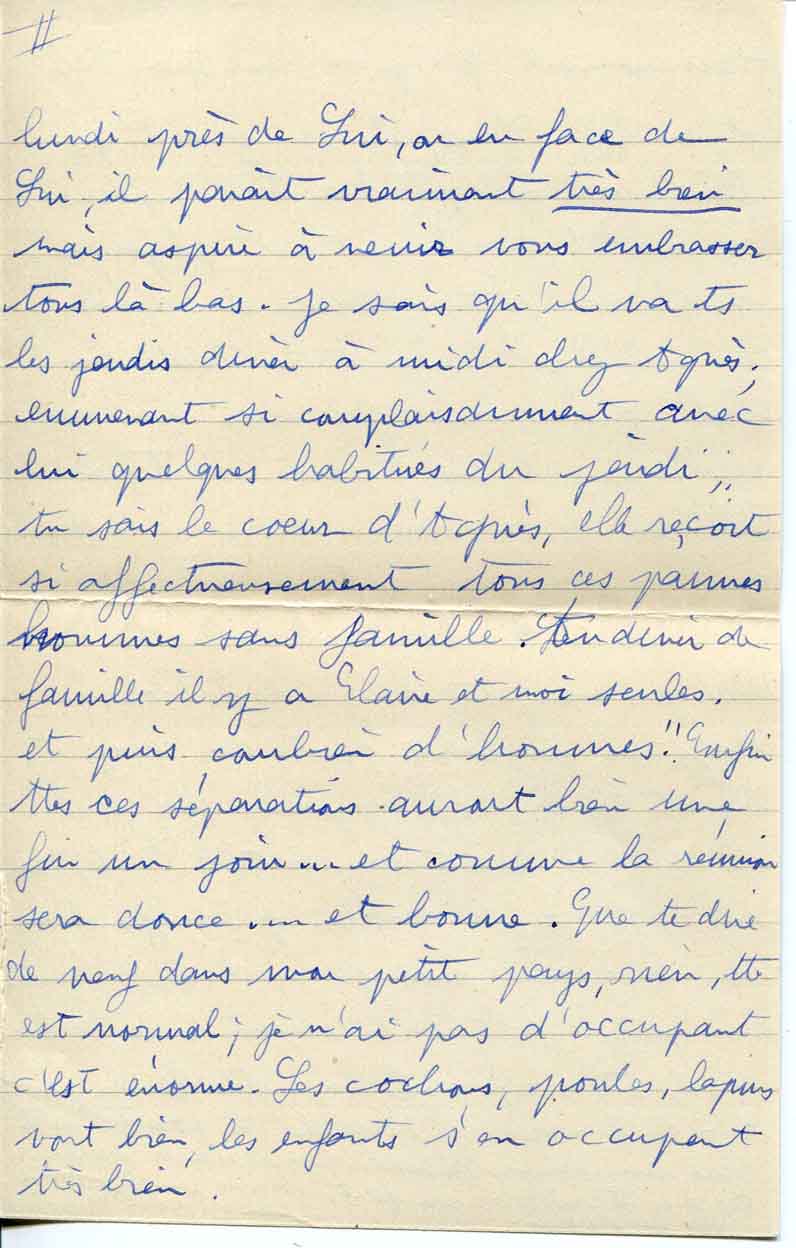 II
lundi près de Lui, ou en face de
Lui, il paraît vraiment très bien
mais aspire à venir vous embrasser
tous là bas. Je sais qu'il va ts
les jeudis diner à midi chez Agnès,
emmenant si complaisamment avec
lui quelques habitués du jeudi,..
tu sais le coeur d'Agnès, elle reçoit
si affectueusement tous ces pauvres
hommes sans famille. de
famille il y a Claire et moi seules.
et puis combien d'hommes!! Enfin
ttes ces séparations auront bien une
fin un jour... et comme la réunion
sera douce.... et bonne. Que te dire
de neuf dans mon petit pays, rien, tt
est normal; je n'ai pas d'occupant
c'est énorme. Les cochons, poules, lapins
vont bien, les enfants s'en occupent
très bien.